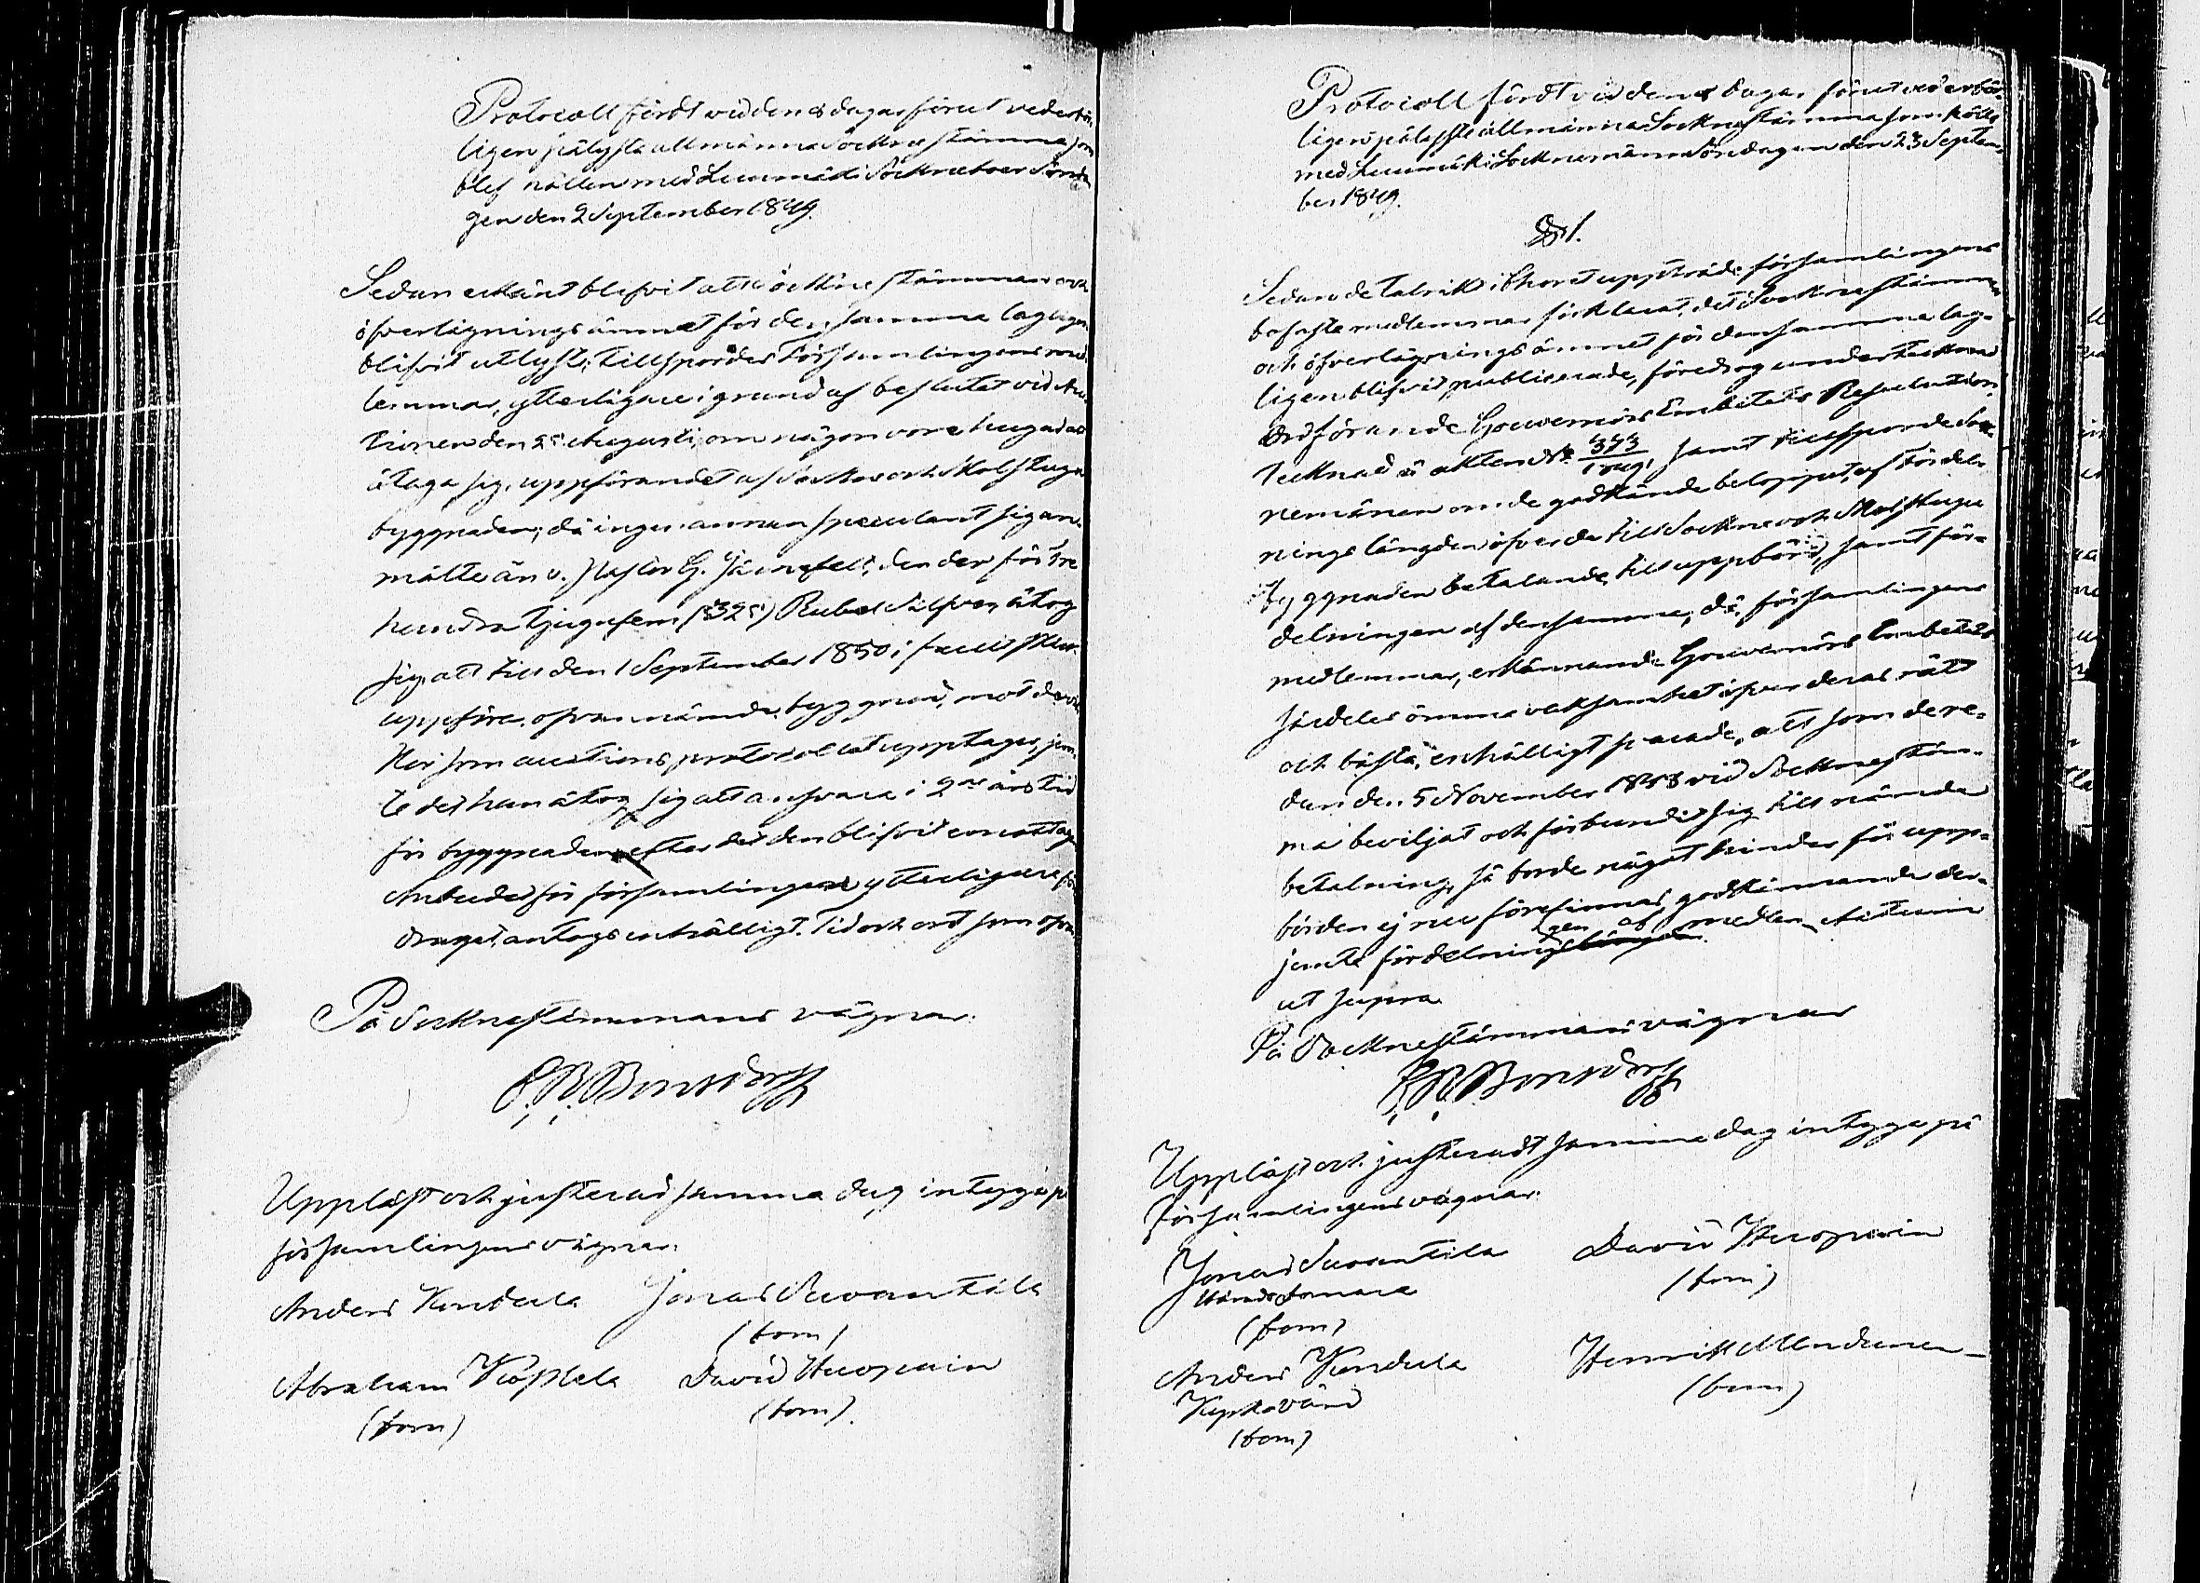 Protocoll fördt vid den 8 dagar förut vederbör
ligen pålysta allmänna Sockne stämma som
blef hållen med Luumäki Sockneboer Sönda
gen den 2 September 1849.
Sedan erkänt blifvit att Sockne stämman och
öfverlägningsämnet för densamma lagligen
blifvit utlyst; tillspordes Församlingens med
lemmar, ytterligare i grund af beslutet vid Auc
tionen den 25 Augusti, om någon vore hugad att
åtaga sig, uppförandet af Sockne och Skolstugu
byggnaden; då ingen annan speculant sig an
mälte än v. Pastor G. Järnefelt, den der för tre
hundra tjugufem (325) Rubel Silfver åtog
sig att till den 1 September 1850 i fullt skick
uppföra ofvannämnde byggnad, mot de vil
kor som auctions protocollet upptager, jem
te det han åtog sig att ansvara i 2ne års tid
för byggnaden efter det den blifvit emottagen
Anbudet för församlingen ytterligare före
draget antogs enhälligt. Tid och ort som ofvan
På Socknestämmans vägnar:
Bonsdorff
Uppläst och justerad samma dag intyga på
församlingens vägnar:
Anders Kandula Jonas Suvantila
(bom)
Abraham David Huopain
(bom) (bom).
Protocoll fördt vid den 8 dagar förut vederbör
ligen pålyste allmänna Sockne stämma som hölls
med Luumäki Socknemänn Söndagen den 23 Septem
ber 1849.
§ 1.
Sedan de talrikt i Choret uppträdde församlingens
besofste medlemmar förklarat, det Sockne stämman
och öfverlägningsämnet för densamma lag
ligen blifvit publicerade, föredrog undertecknad
Ordförande Gouvernörs Embetets Resolution,
tecknad å akten No 373, samt tillsporde Sock
nemännen om de godkände beloppet af fördel
nings längden öfver de till Sockne och Skolstugu
byggnaden betalande till uppbörd, samt för
delningen af densamma, då församlingens
medlemmar, erkännande Gouvernörs Embetets
särdeles ömma vaksamhet öfver deras rätt
och bästa, enhälligt svarade, att som de re
dan den 5 November 1848 vid Socknestäm
ma beviljat och förbundit sig till nämnda
betalning, så borde något hinder för upp
börden ej nu förefinnas, godkännande der
jemte fördelningen af medlen Actum
ut supra.
På Socknestämmans vägnar
Bonsdorff
Uppläst och justeradt samma dag intyga på
Församlingens vägnar:
Jonas Suvantila David Huopain
Häradsdomare (bom)
(bom)
Anders Kandula Henrik
Kyrkovärd (bom)
(bom)